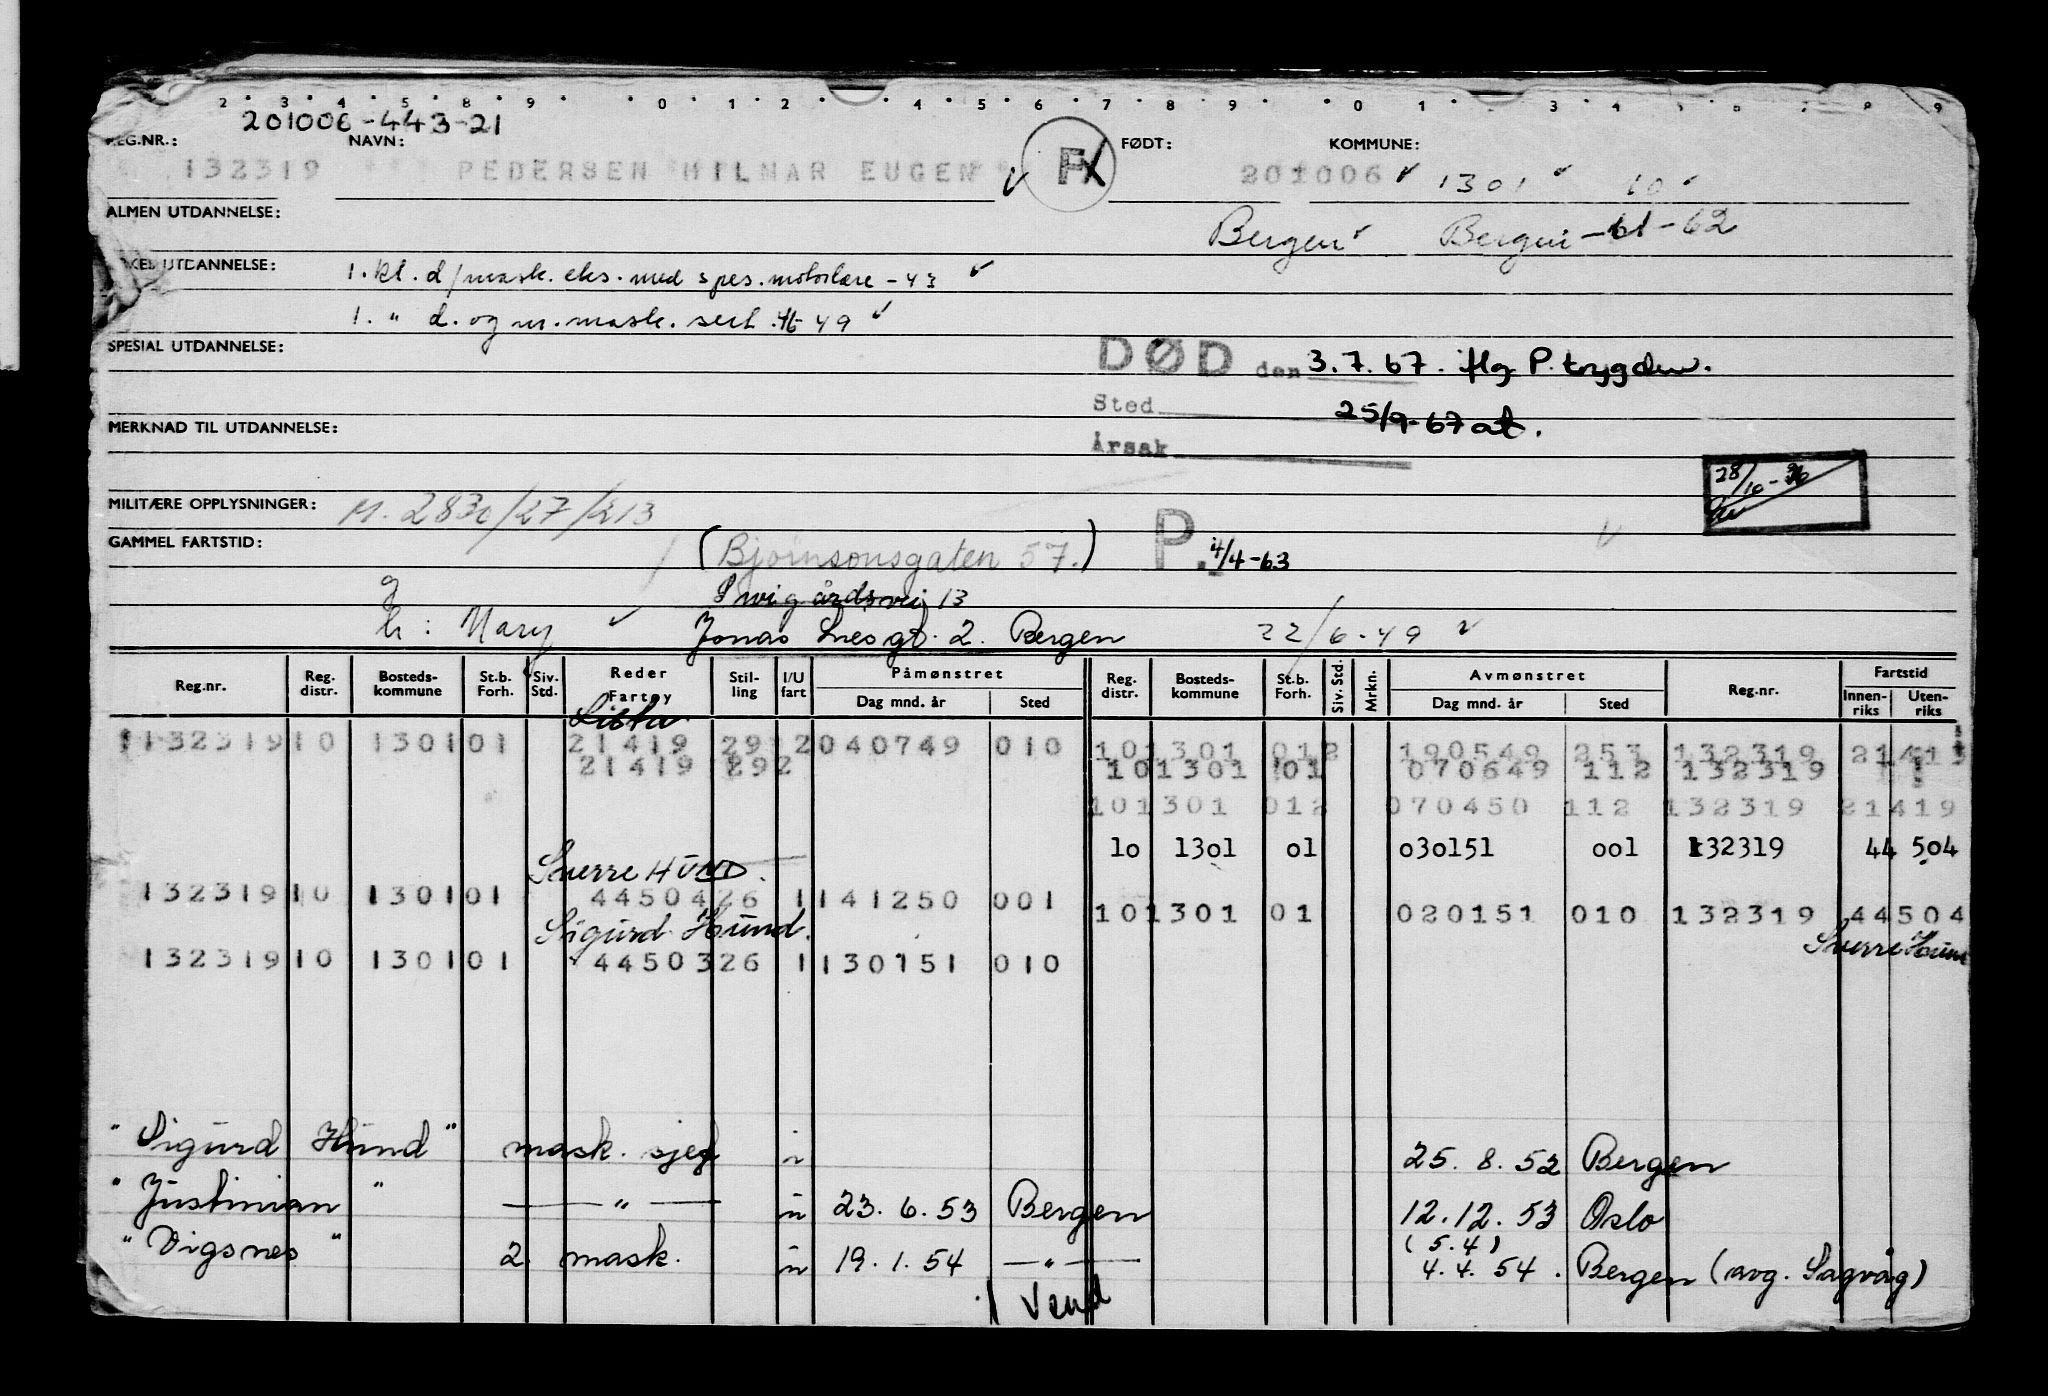 2 3 4 5 8 9 0 1 2 4 5 6 7 8 9 0 1 3 4 9
201006-443-21
REG.NR.: NAVN: FØDT: KOMMUNE:
132319 PEDERSEN HILMAR EUGEN F 201006 1301 10
ALMEN UTDANNELSE: Bergen Bergen -61-62
UTDANNELSE: 1. kl. d/mask. eks. med spes. motorlære - 43
1. " d. og m. mask. sert. 49
SPESIAL UTDANNELSE:
DØD den 3.7.67. iflg P. trygden.
Sted 25/9-67
MERKNAD TIL UTDANNELSE:
Årsak
28/10-
MILITÆRE OPPLYSNINGER: M. 2830/27/213
GAMMEL FARTSTID: (Bjørnsonsgaten 57.) P. 4/4-63
13
g
h: Mary Jonas Liesgt. 2. Bergen 22/6-49
Reg.nr. Reg. distr. Bosteds-kommune St.b. Forh. Siv. Std. Reder Fartøy Stil-ling I/U fart Påmønstret Dag mnd. år Sted Reg. distr. Bosteds-kommune St.b. Forh. Siv. Std. Mrkn. Avmønstret Dag mnd. år Sted Reg.nr. Fartstid Innen-riks Uten-riks
Lista
132319 10 1301 01 21419 29 2 040749 010 10 1301 012 190549 253 132319 21413
21419 292 10 1301 01 070649 112 132319
10 1301 012 070450 112 132319 21419
10 1301 01 030151 001 132319 44 504
Sverre Hund.
132319 10 1301 01 44504 26 1 141250 001
10 1301 01 020151 010 132319 44504
Sigurd Hund. Sverre Hund
132319 10 1301 01 44503 26 1 130151 010
"Sigurd Hund" mask. sjef i 25. 8. 52 Bergen
"Justinian" — " — u 23. 6. 53 Bergen 12. 12. 53 Oslo
(5.4)
"Vigsnes" 2. mask. u 19. 1. 54 — " — 4. 4. 54. Bergen (avg. Sagvåg)
Vend